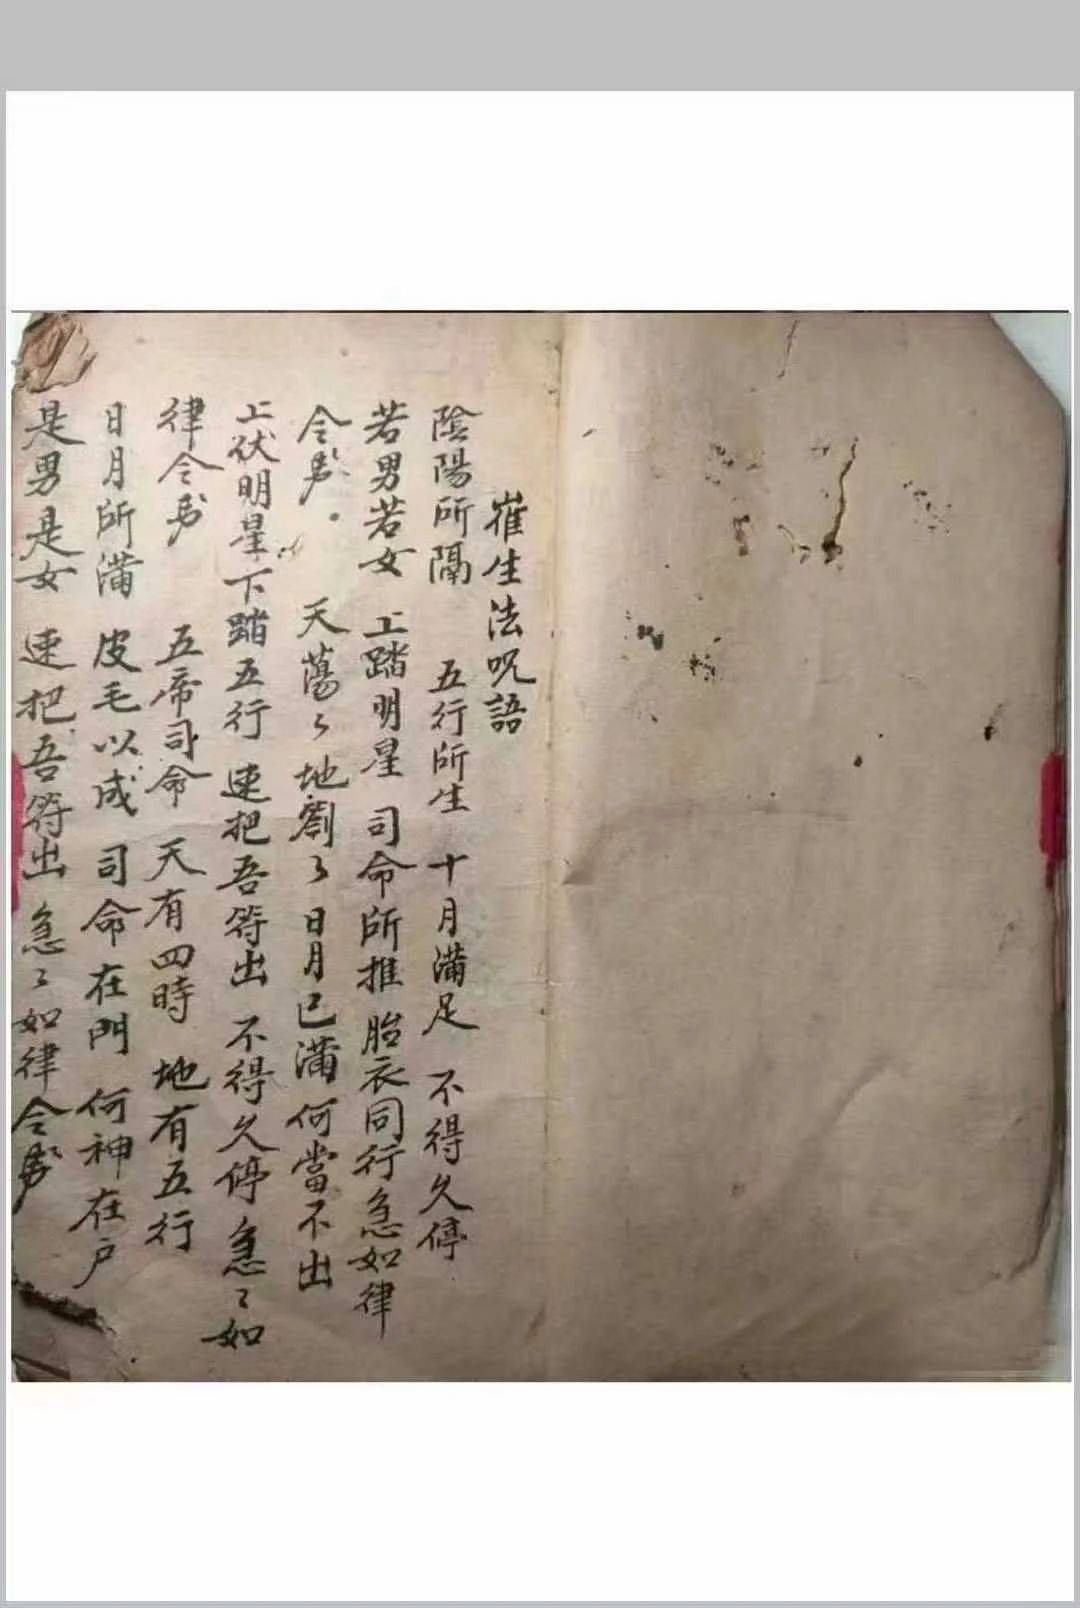 崔生法呪語
陰陽所隔 五行所生 十月滿足 不得久停
若男若女 上踏明星 司命所推 胎衣同行急如律
令 天蕩々地劉々日月已滿何當不出
上伏明星下踏五行 速把吾符出 不得久停 急々如
律令 五帝司命 天有四時 地有五行
日月所滿 皮毛以成 司命在門 何神在户
是男是女 速把吾符出 急々如律令